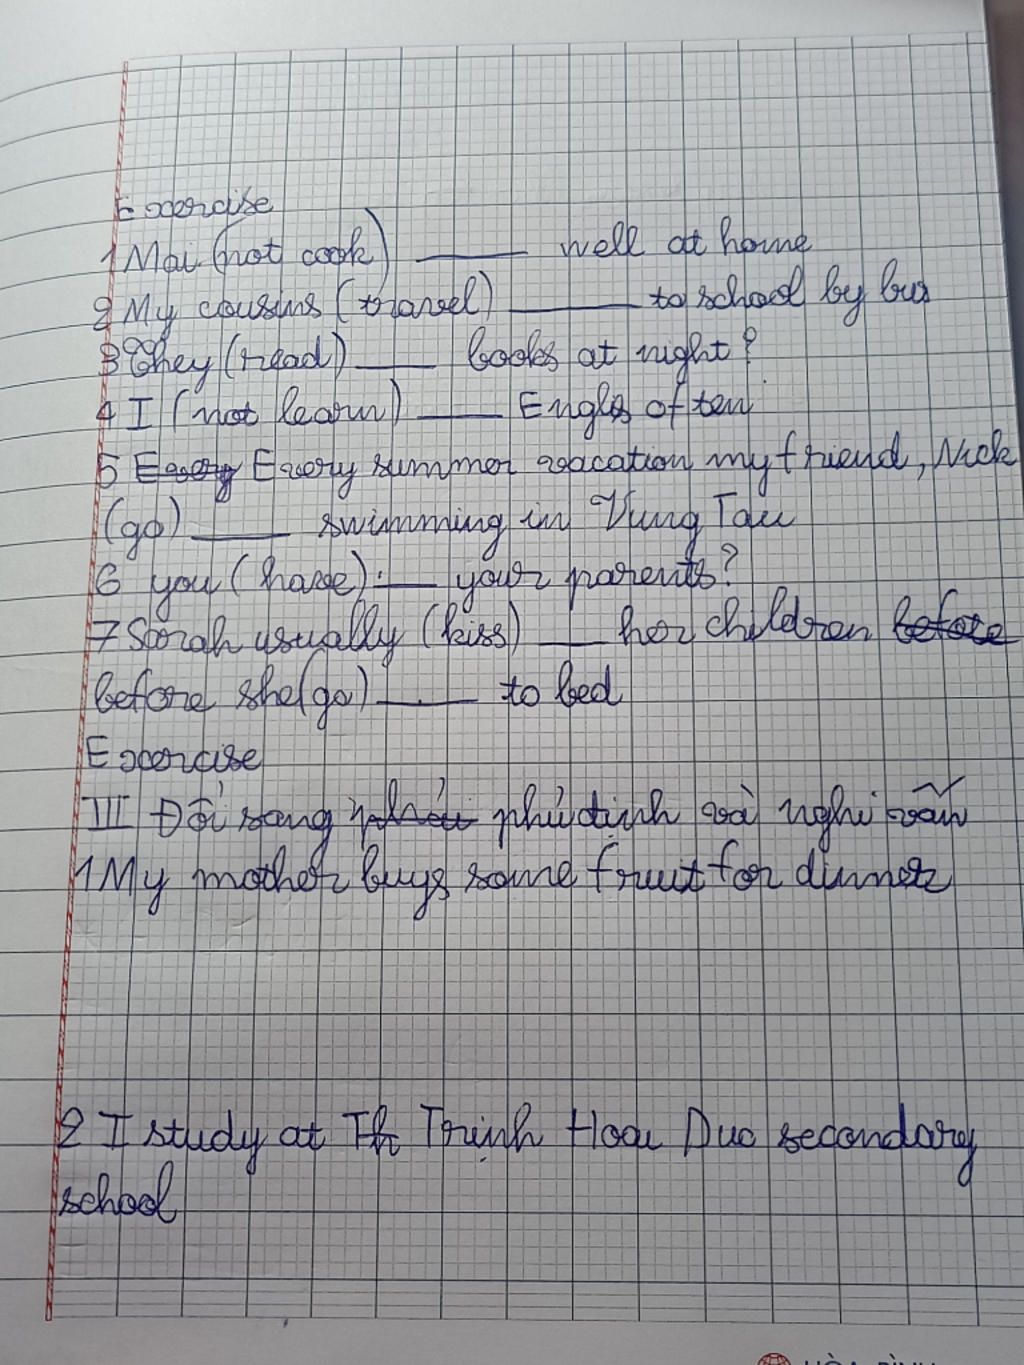 Exercise
1 Mai (not cook) ______ well at home
2 My cousins (travel) ______ to school by bus
3 They (read) ______ books at night?
4 I (not learn) ______ Englis often
5 Every Every summer vacation my friend, Nick
(go) ______ swimming in Vung Tau
6 you (have) ______ your parents?
7 Sorah usually (kiss) ______ her children before
before she (go) ______ to bed
Exercise
III Đổi sang phải phủ định và nghi vấn
1 My mother buys some fruit for dinner
2 I study at Th Trịnh Hoai Duc secondary
school
HÒA BÌNH